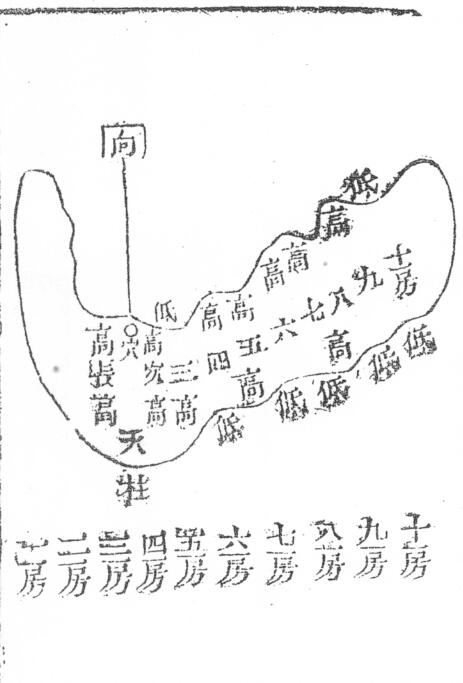 向
低
高
高
高
高
高
低
十房
九
八
七
六
五
四
三
穴
高長高
高次高
高
高
高
低
低
低
低
低
天柱
一房
二房
三房
四房
五房
六房
七房
八房
九房
十房